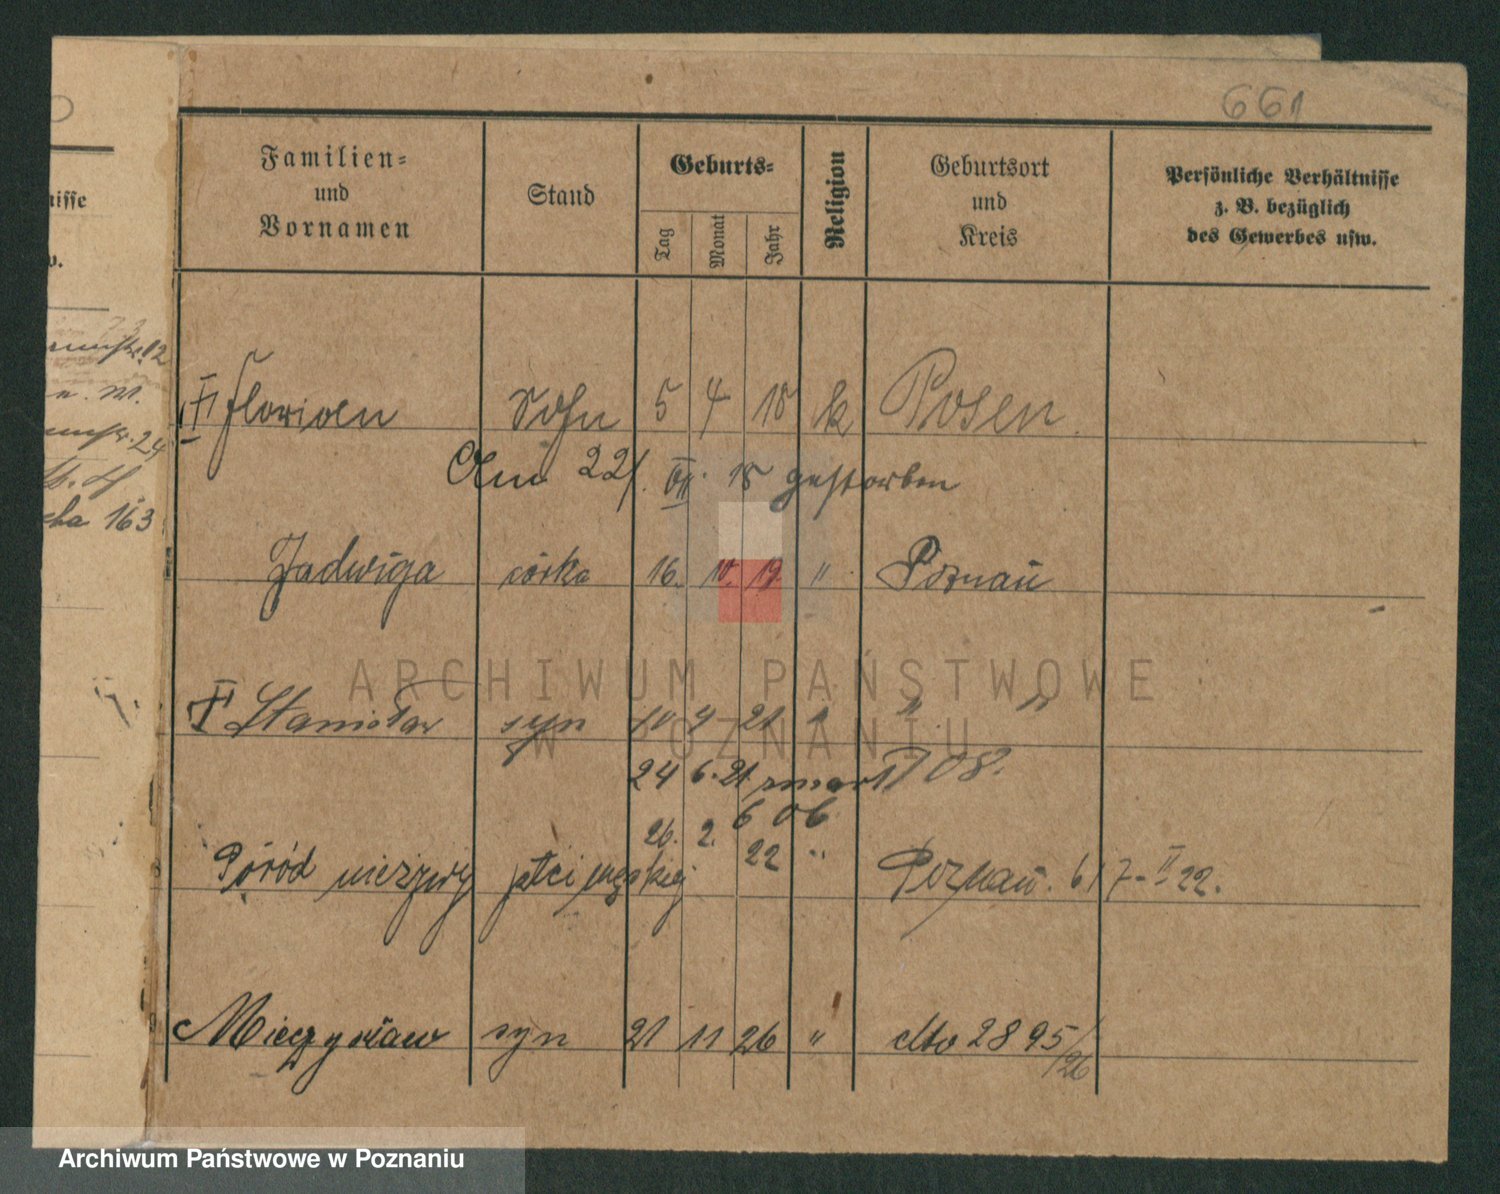 661
nisse
w.
Familien=
und
Vornamen
Stand
Geburts=
Tag
Monat
Jahr
Religion
Geburtsort
und
Kreis
Persönliche Verhältnisse
z. B. bezüglich
des Gewerbes usw.
12
24
163
Florian Sohn 5 4 18 k Posen
Am 22/. VII. 18 gestorben
Jadwiga córka 16. 10. 19. " Poznań
Stanisław syn 10 4 21 " " "
24 6. 21 zmarł 708.
606
26. 2. 22 "
Poród nieżywy płci męskiej Poznań. 617-II 22.
Mieczysław syn 21 11 26 " dto 2895/26
ARCHIWUM PAŃSTWOWE
W POZNANIU
Archiwum Państwowe w Poznaniu